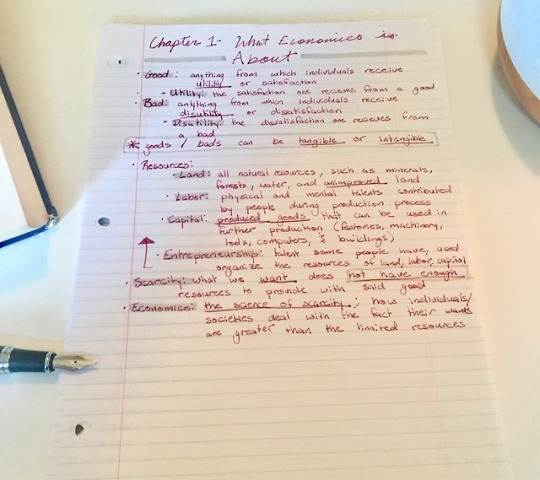 Chapter 1- What Economics is
About
• Good: anything from which individuals receive
utility or satisfaction
- Utility: the satisfaction one receives from a good
• Bad: anything from which individuals receive
disutility or disatisfaction
• Disutility: the dissatisfaction one recieves from
a bad
* goods / bads can be tangible or intangible
• Resources:
• Land: all natural resources, such as minerals,
forests, water, and unimproved land
• Labor: physical and mental talents contributed
by people during production process
• Capital: produced goods that can be used in
further production (factories, machinery,
tools, computers, & buildings)
• Entrepreneurship: talent some people have, used
organize the resources of land, labor, capital
• Scarcity: what we want does not have enough
resources to provide with said good
• Economics: the science of scarcity; how individuals/
societies deal with the fact their wants
are greater than the limited resources